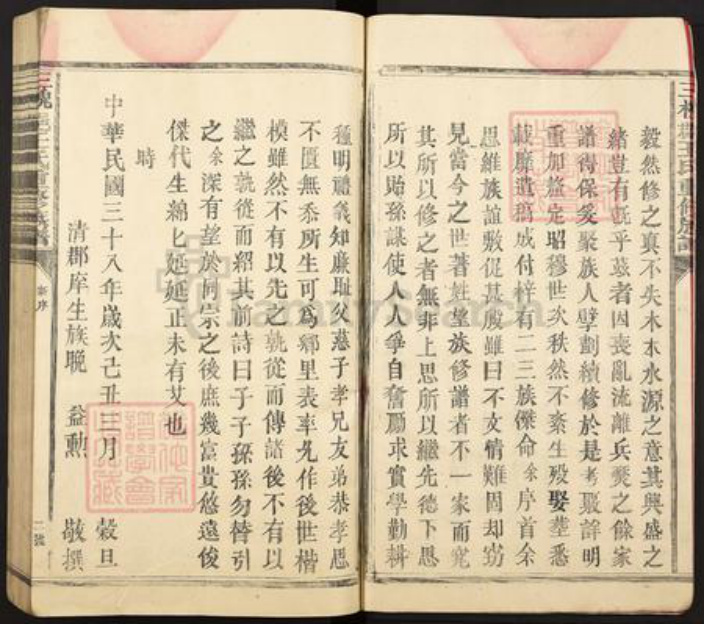 三槐郡王氏重修族譜
毅然修之眞不失木本水源之意其興盛之
緒豈有旣乎茲者因喪亂流離兵燹之餘家
譜得保爰聚族人擘劃續修於是考覈詳明
重加鑑定昭穆世次秩然不紊生殁娶塟悉
載靡遺稿成付梓有二三族傑命余序首余
思維族誼敷促甚殷雖曰不文情難固却窃
見當今之世著姓望族修譜者不一家而究
其所以修之者無非上思所以繼先德下思
所以貽孫謀使人人爭自奮勵求實學勤耕
種明禮義知廉恥父慈子孝兄友弟恭孝思
不匱無忝所生可爲鄉里表率允作後世楷
模雖然不有以先之孰從而傳諸後不有以
繼之孰從而紹其前詩曰子子孫孫勿替引
之余深有望於同宗之後庶幾富貴悠遠俊
傑代生綿匕延延正未有艾也
時
中華民國三十八年歲次己丑三月 穀旦
清郡庠生族晚 益勲 敬撰
新序
二號
FamilySearch